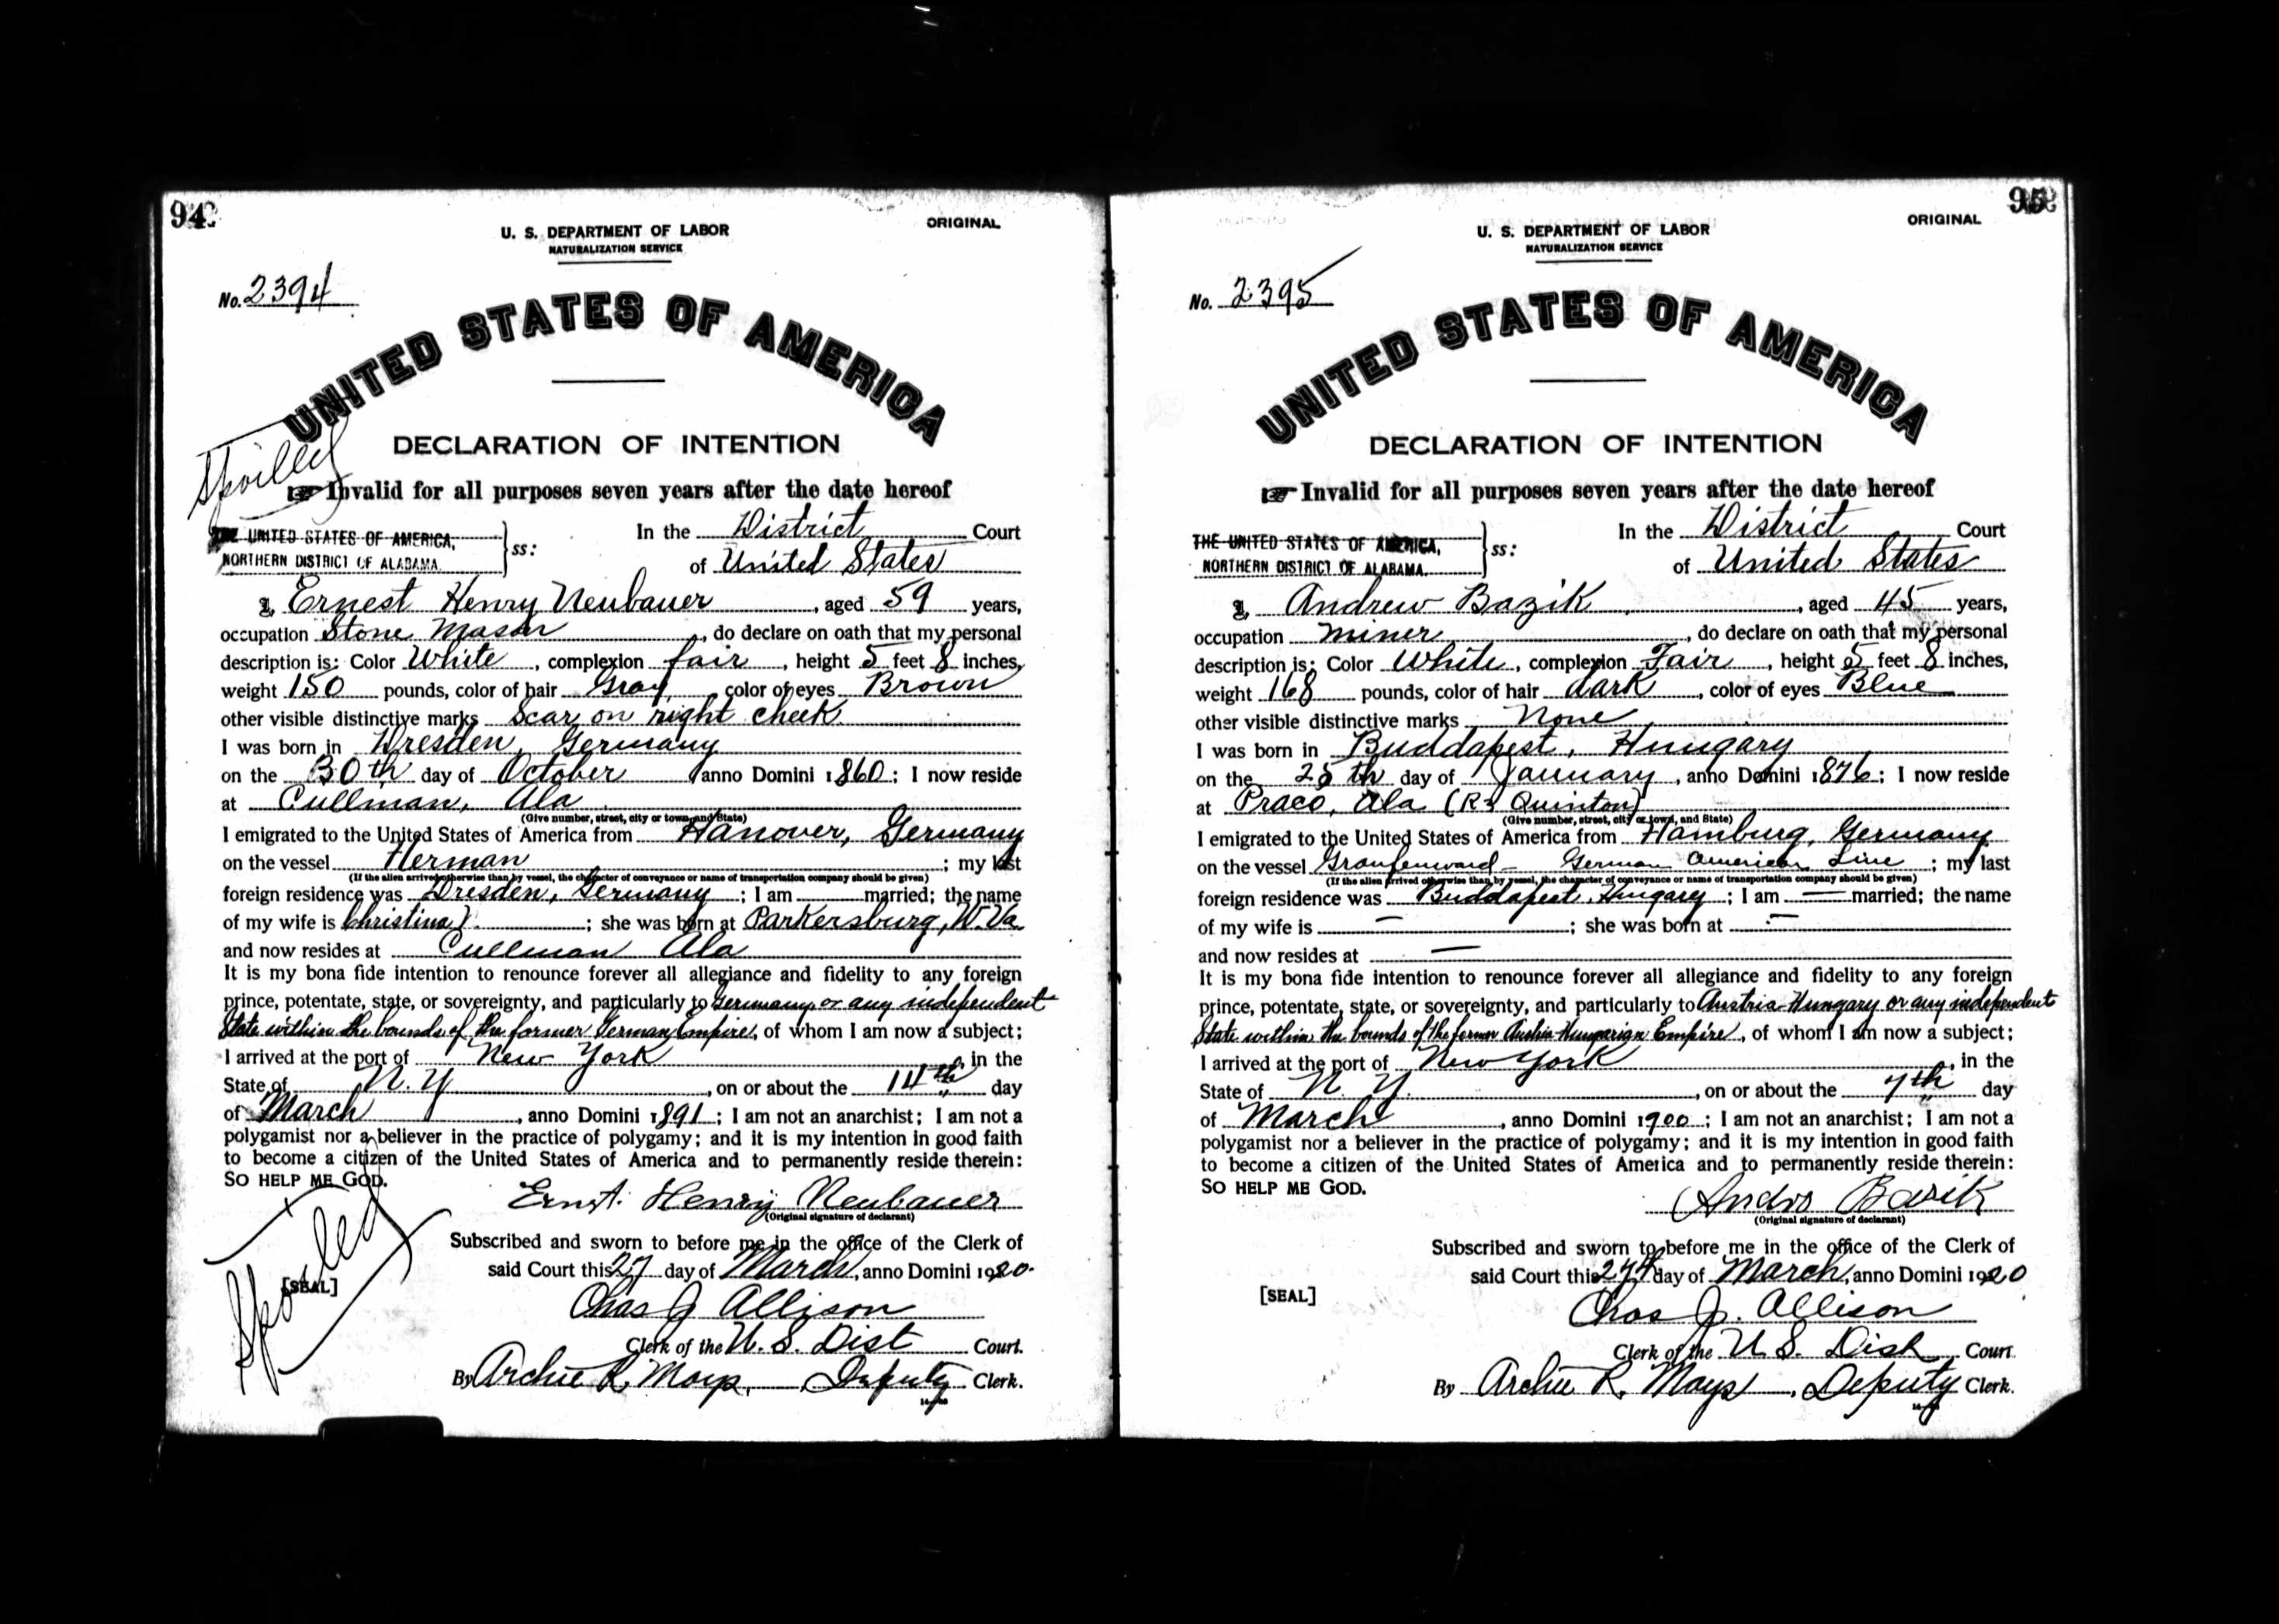 94
ORIGINAL
U. S. DEPARTMENT OF LABOR
NATURALIZATION SERVICE
No. 2394
UNITED STATES OF AMERICA
DECLARATION OF INTENTION
Spoiled
Invalid for all purposes seven years after the date hereof
THE UNITED STATES OF AMERICA,
NORTHERN DISTRICT OF ALABAMA.
ss:
In the District Court
of United States
I, Ernest Henry Neubauer, aged 59 years,
occupation Stone Mason, do declare on oath that my personal
description is: Color White, complexion fair, height 5 feet 8 inches,
weight 150 pounds, color of hair Gray, color of eyes Brown
other visible distinctive marks Scar on right cheek.
I was born in Dresden, Germany
on the 30th day of October anno Domini 1860; I now reside
at Cullman, Ala.
(Give number, street, city or town, and State)
I emigrated to the United States of America from Hanover, Germany
on the vessel Herman; my last
(If the alien arrived otherwise than by vessel, the character of conveyance or name of transportation company should be given)
foreign residence was Dresden, Germany; I am married; the name
of my wife is Christina; she was born at Parkersburg, W. Va.
and now resides at Cullman Ala
It is my bona fide intention to renounce forever all allegiance and fidelity to any foreign
prince, potentate, state, or sovereignty, and particularly to Germany or any independent
State within the bounds of the former German Empire, of whom I am now a subject;
I arrived at the port of New York, in the
State of N. Y, on or about the 14th day
of March, anno Domini 1891; I am not an anarchist; I am not a
polygamist nor a believer in the practice of polygamy; and it is my intention in good faith
to become a citizen of the United States of America and to permanently reside therein:
SO HELP ME GOD.
Ernst. Henry Neubauer
(Original signature of declarant)
Subscribed and sworn to before me in the office of the Clerk of
said Court this 27 day of March, anno Domini 1920.
Spoiled
[SEAL]
Chas J Allison
Clerk of the U. S. Dist Court.
By Archie R. Mays, Deputy Clerk.
95
ORIGINAL
U. S. DEPARTMENT OF LABOR
NATURALIZATION SERVICE
No. 2395
UNITED STATES OF AMERICA
DECLARATION OF INTENTION
Invalid for all purposes seven years after the date hereof
THE UNITED STATES OF AMERICA,
NORTHERN DISTRICT OF ALABAMA.
ss:
In the District Court
of United States
I, Andrew Bazik, aged 45 years,
occupation miner, do declare on oath that my personal
description is: Color White, complexion Fair, height 5 feet 8 inches,
weight 168 pounds, color of hair dark, color of eyes Blue
other visible distinctive marks None
I was born in Buddapest, Hungary
on the 25th day of January, anno Domini 1876; I now reside
at Praco, Ala (R3 Quinton)
(Give number, street, city or town, and State)
I emigrated to the United States of America from Hamburg, Germany
on the vessel German American Line; my last
(If the alien arrived otherwise than by vessel, the character of conveyance or name of transportation company should be given)
foreign residence was Buddapest, Hungary; I am — married; the name
of my wife is —; she was born at —
and now resides at —
It is my bona fide intention to renounce forever all allegiance and fidelity to any foreign
prince, potentate, state, or sovereignty, and particularly to Austria-Hungary or any independent
State within the bounds of the former Austria-Hungarian Empire, of whom I am now a subject;
I arrived at the port of New York, in the
State of N. Y., on or about the 7th day
of March, anno Domini 1900; I am not an anarchist; I am not a
polygamist nor a believer in the practice of polygamy; and it is my intention in good faith
to become a citizen of the United States of America and to permanently reside therein:
SO HELP ME GOD.
Andro Bazik
(Original signature of declarant)
Subscribed and sworn to before me in the office of the Clerk of
said Court this 27th day of March, anno Domini 1920
[SEAL]
Chas J. Allison
Clerk of the U. S. Dist Court
By Archie R. Mays, Deputy Clerk.